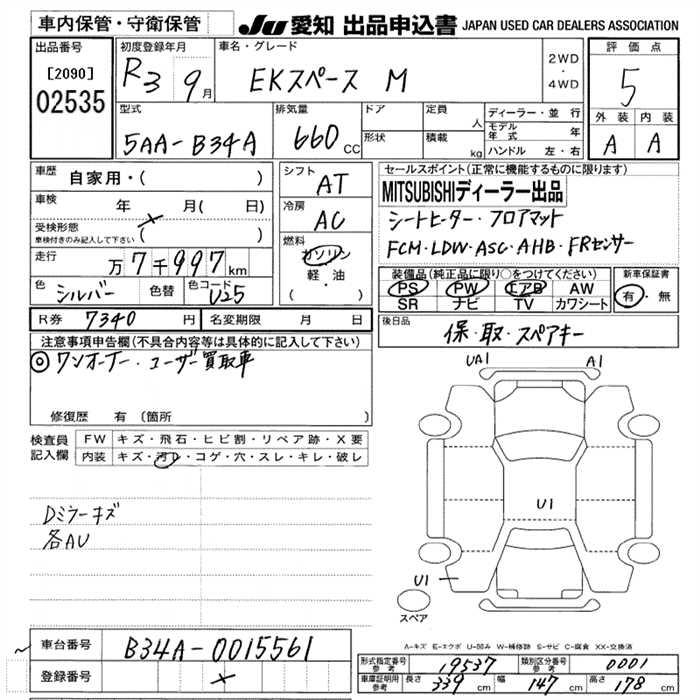 車内保管・守衛保管
JU 愛知 出品申込書 JAPAN USED CAR DEALERS ASSOCIATION
出品番号
[2090]
02535
初度登録年月
R3 9月
車名・グレード
EKスペース M
2WD
・
4WD
評価点
5
外装 内装
A A
型式
5AA-B34A
排気量
660 CC
ドア
形状
定員 人
積載 kg
ディーラー・並行
モデル年式 年
ハンドル 左・右
車歴
自家用・( )
車検 年 月( 日)
受検形態
車検付きのみ記入して下さい ( )
走行
万7千997km
色 シルバー 色替 色コード U25
シフト
AT
冷房
AC
燃料
ガソリン
軽・油
( )
セールスポイント(正常に機能するものに限ります)
MITSUBISHIディーラー出品
シートヒーター・フロアマット
FCM・LDW・ASC・AHB・FRセンサー
装備品(純正品に限り○をつけてください)
PS PW エアB AW
SR ナビ TV カワシート
新車保証書
有・無
R券 7340 円 名変期限 月 日
後日品
保・取・スペアキー
注意事項申告欄(不具合内容等は具体的に記入して下さい)
◎ワンオーナー・ユーザー買取車
修復歴 有 (箇所 )
検査員
記入欄
FW キズ・飛石・ヒビ割・リペア跡・X要
内装 キズ・汚レ・コゲ・穴・スレ・キレ・破レ
Dミラーキズ
各AU
UA1
A1
U1
U1
スペア
A-キズ E-エクボ U-凹み W-補修跡 S-サビ C-腐食 XX-交換済
車台番号 B34A-0015561
登録番号
形式指定番号
参考
19537
類別区分番号
参考
0001
車庫証明用
参考
長さ 339 cm 幅 147 cm 高さ 178 cm